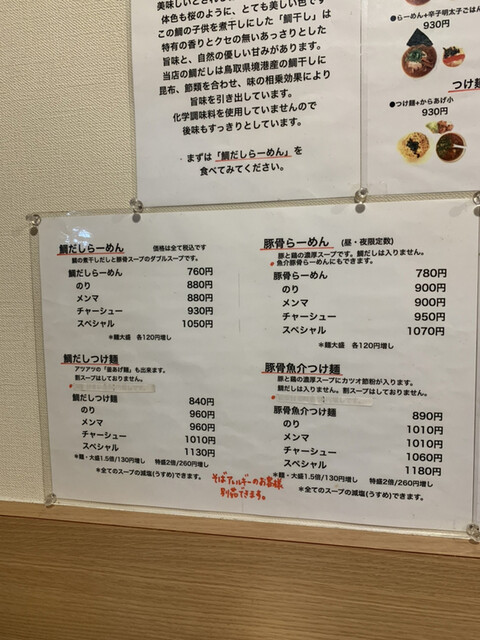 美味しいとされる
体色も桜のように、とても美しい色です
この鯛の子供を煮干しにした「鯛干し」は
特有の香りとクセの無いあっさりとした
旨味と、自然の優しい甘みがあります。
当店の鯛だしは鳥取県境港産の鯛干しに
昆布、節類を合わせ、味の相乗効果により
旨味を引き出しています。
化学調味料を使用していませんので
後味もすっきりとしています。
・まずは「鯛だしらーめん」を
食べてみてください。
●らーめん+辛子明太子ごはん
930円
つけ麺
●つけ麺+からあげ小
930円
鯛だしらーめん 価格は全て税込です
鯛の煮干しだしと豚骨スープのダブルスープです。
鯛だしらーめん 760円
のり 880円
メンマ 880円
チャーシュー 930円
スペシャル 1050円
*麺大盛 各120円増し
鯛だしつけ麺
アツアツの「釜あげ麺」も出来ます。
割スープはしておりません。
鯛だしつけ麺 840円
のり 960円
メンマ 960円
チャーシュー 1010円
スペシャル 1130円
*麺・大盛1.5倍/130円増し 特盛2倍/260円増し
*全てのスープの減塩(うすめ)できます。
豚骨らーめん (昼・夜限定数)
豚と鶏の濃厚スープです。鯛だしは入りません。
●魚介豚骨らーめんにもできます。
豚骨らーめん 780円
のり 900円
メンマ 900円
チャーシュー 950円
スペシャル 1070円
*麺大盛 各120円増し
豚骨魚介つけ麺
豚と鶏の濃厚スープにカツオ節粉が入ります。
鯛だしは入りません。割スープはしておりません。
豚骨魚介つけ麺 890円
のり 1010円
メンマ 1010円
チャーシュー 1060円
スペシャル 1180円
*麺・大盛1.5倍/130円増し 特盛2倍/260円増し
*全てのスープの減塩(うすめ)できます。
そばアレルギーのお客様
別茹できます。